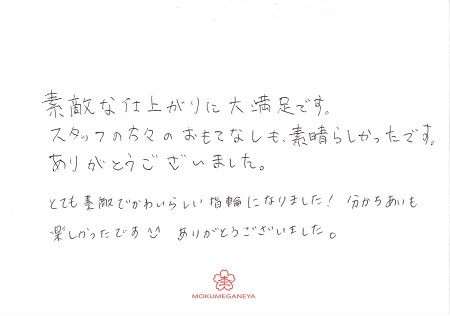 素敵な仕上がりに大満足です。
スタッフの方々のおもてなしも、素晴らしかったです。
ありがとうございました。
とても素敵でかわいらしい指輪になりました！ 分かちあいも
楽しかったです ありがとうございました。
MOKUMEGANEYA